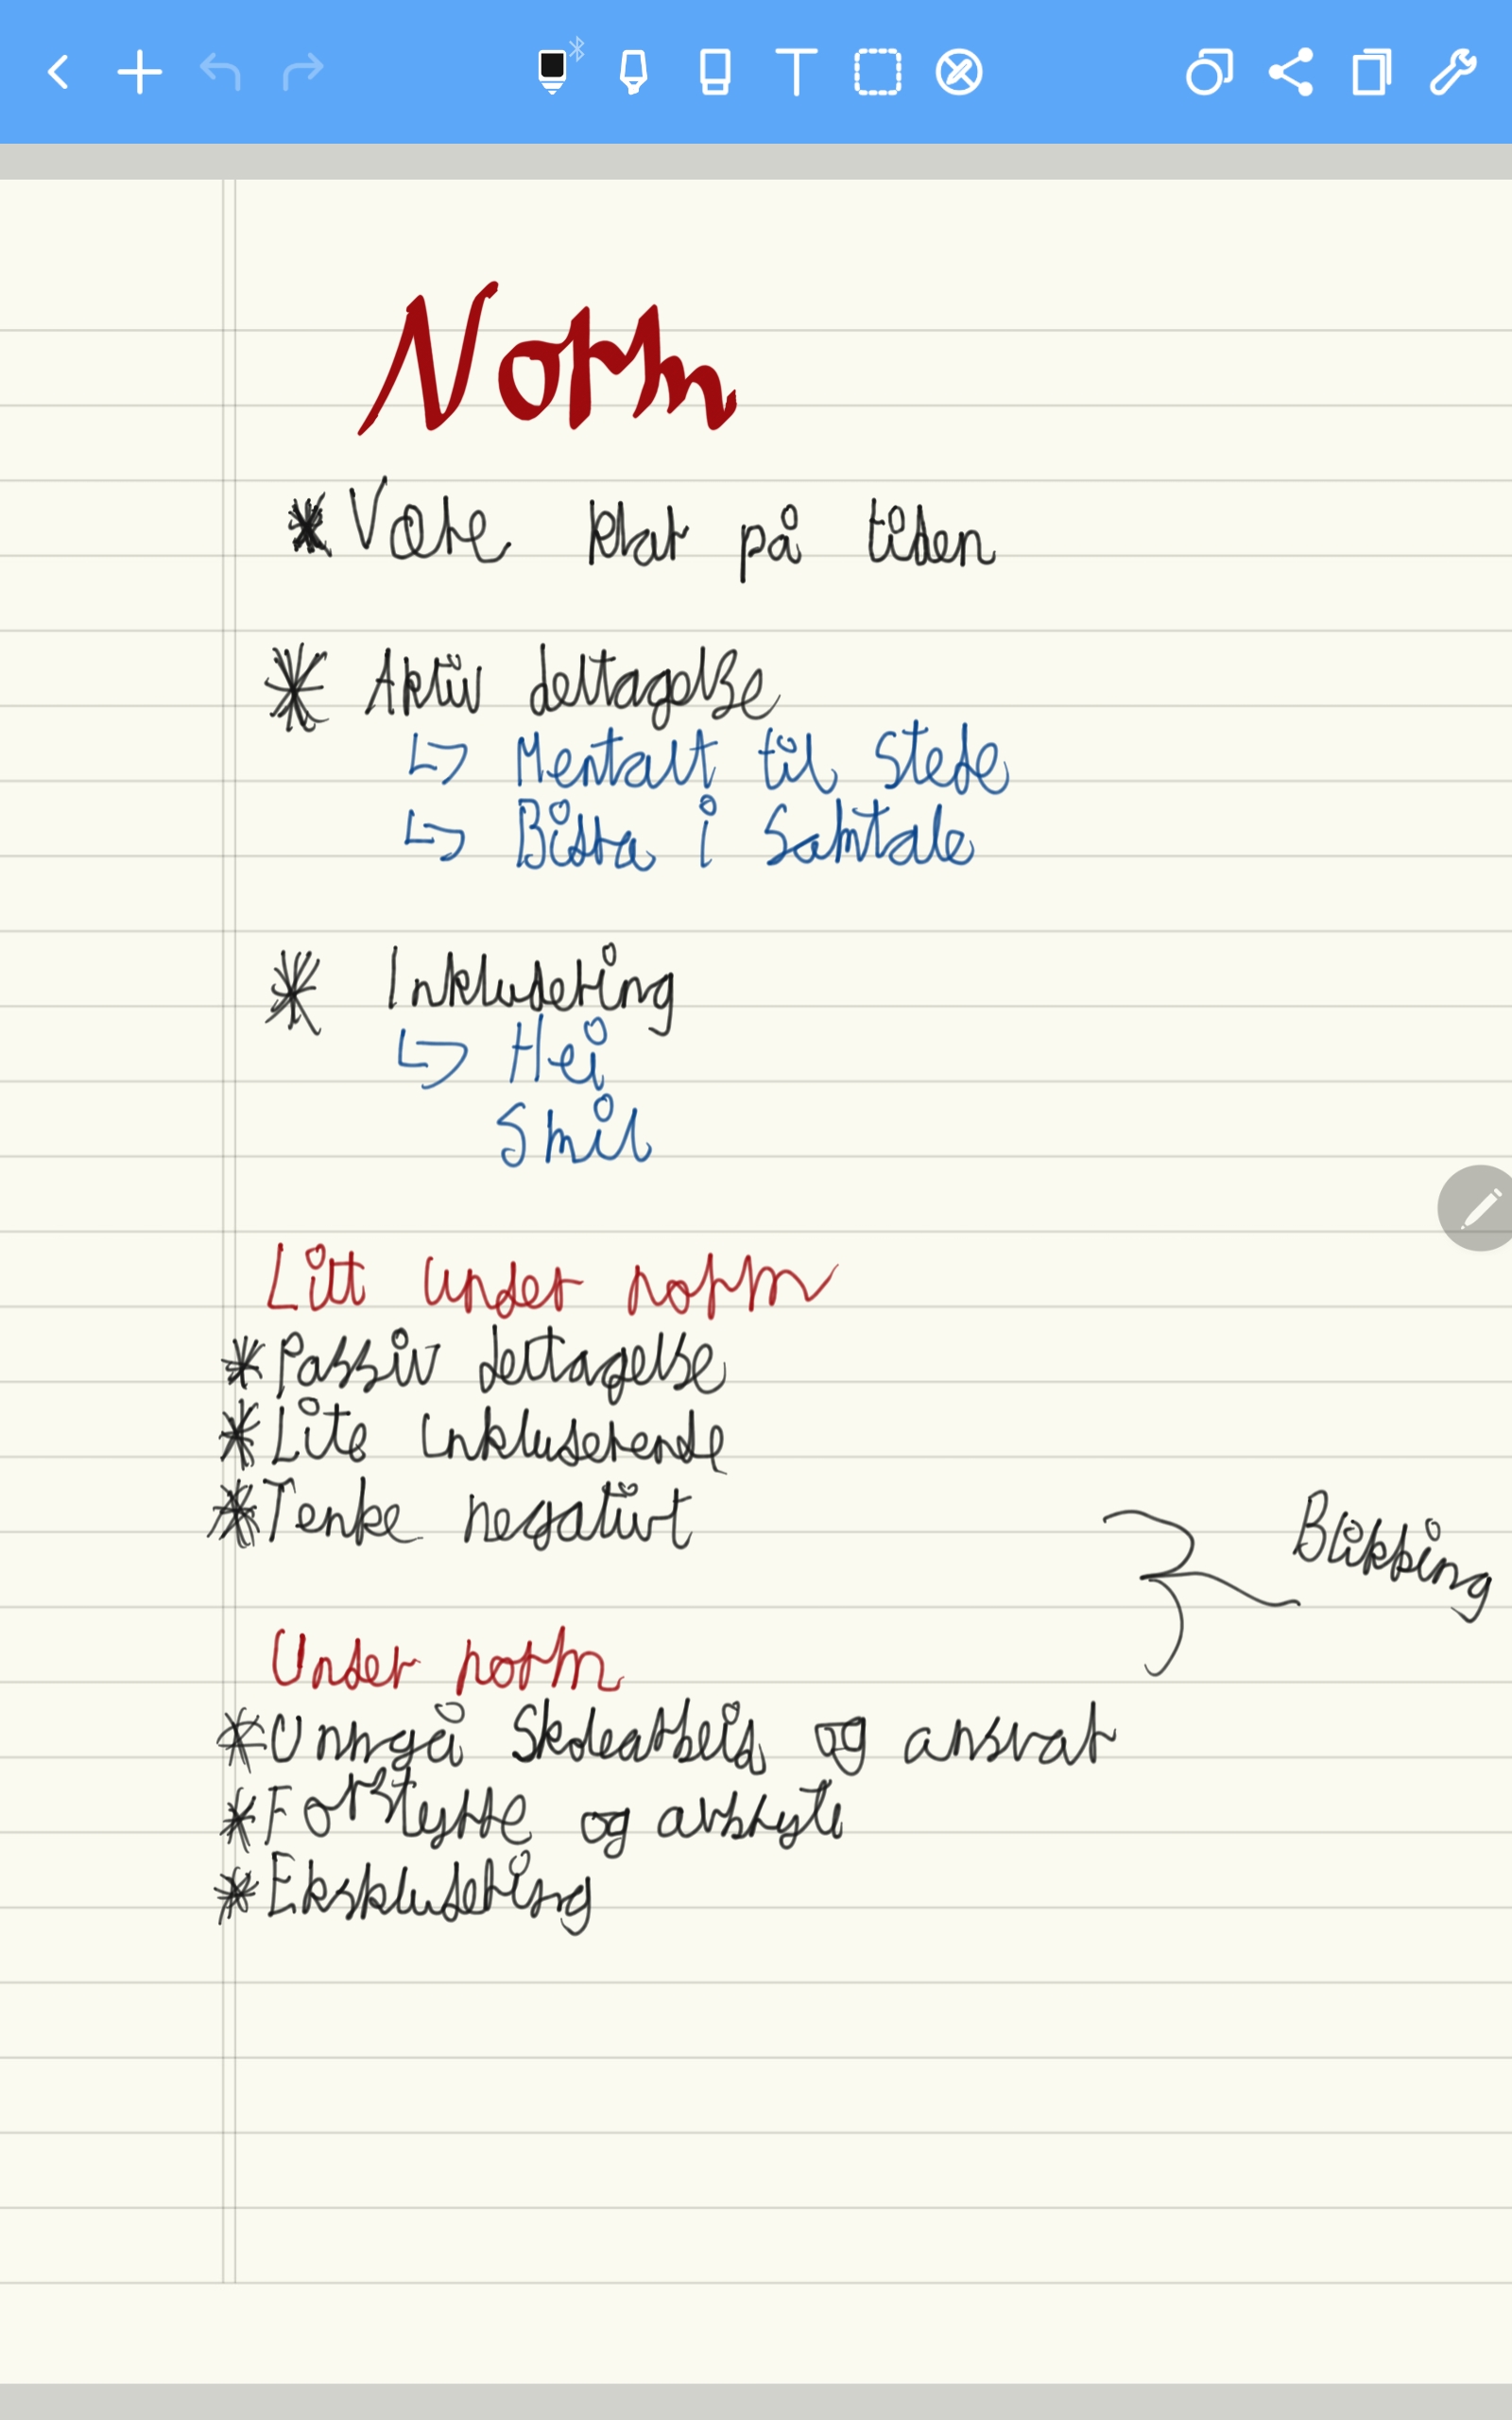 Norm
* Være klar på tiden
* Aktiv deltagelse
↳ Mentalt til stede
↳ Bistra i samtale
* Inkludering
↳ Hei
Smil
Litt under norm
* Passiv deltagelse
* Lite inkluderende
* Tenke negativt
Blikking
Under norm
* Unngå skolearbeid og ansvar
* Forstyrre og avbryte
* Ekskludering